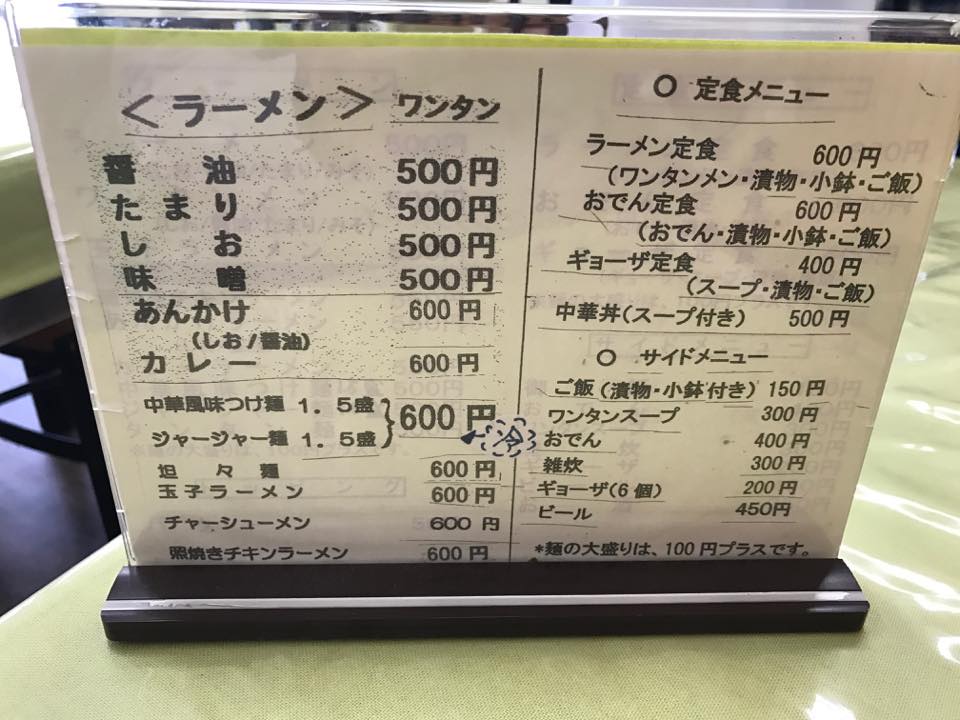 ＜ラーメン＞ ワンタン
醤油 500円
たまり 500円
しお 500円
味噌 500円
あんかけ 600円
(しお/醤油)
カレー 600円
中華風味つけ麺 1.5盛
600円
ジャージャー麺 1.5盛
冷
坦々麺 600円
玉子ラーメン 600円
チャーシューメン 600円
照焼きチキンラーメン 600円
○ 定食メニュー
ラーメン定食 600円
(ワンタンメン・漬物・小鉢・ご飯)
おでん定食 600円
(おでん・漬物・小鉢・ご飯)
ギョーザ定食 400円
(スープ・漬物・ご飯)
中華丼(スープ付き) 500円
○ サイドメニュー
ご飯(漬物・小鉢付き) 150円
ワンタンスープ 300円
おでん 400円
雑炊 300円
ギョーザ(6個) 200円
ビール 450円
*麺の大盛りは、100円プラスです。